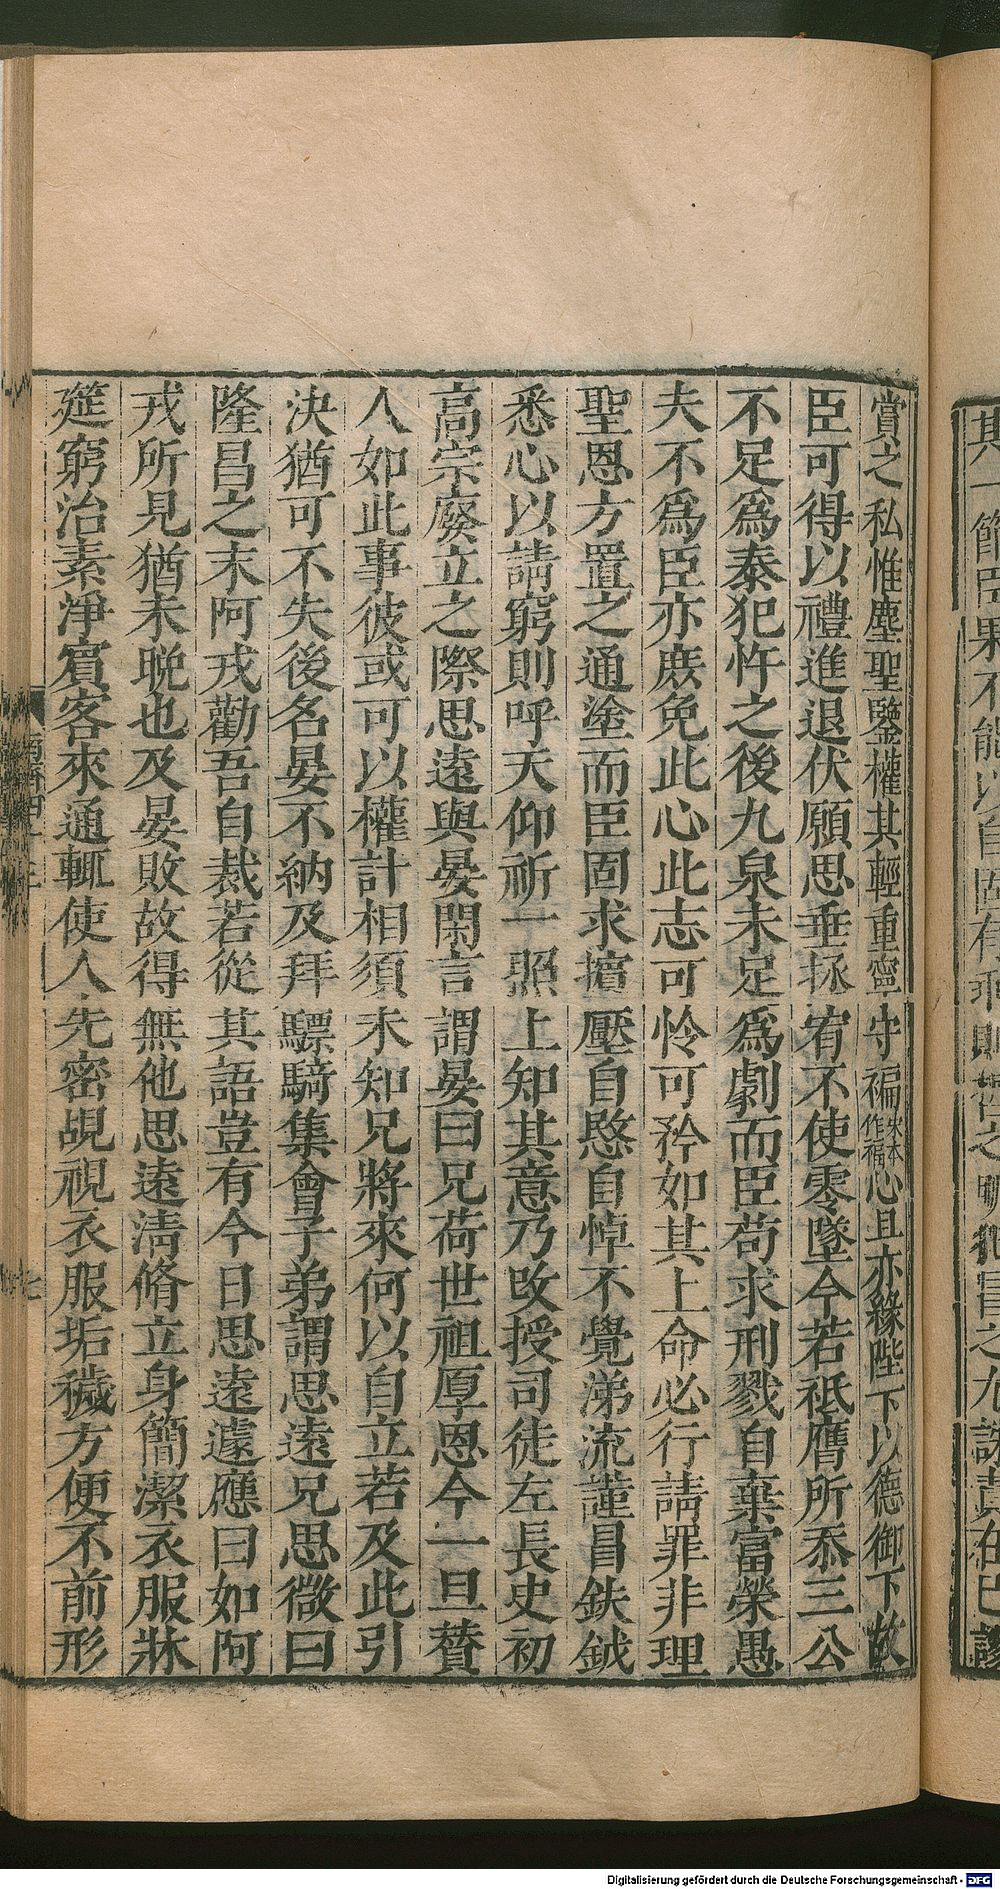 賞之私惟塵聖鑒權其輕重寧守褊宋本作福心且亦緣陛下以德御下故
臣可得以禮進退伏願思垂拯宥不使零墜今若祗膺所忝三公
不足爲泰犯忤之後九泉未足爲劇而臣苟求刑戮自棄富榮愚
夫不爲臣亦庶免此心此志可怜可矜如其上命必行請罪非理
聖恩方置之通塗而臣固求擯壓自愍自悼不覺涕流謹冒鈇鉞
悉心以請窮則呼天仰祈一照上知其意乃改授司徒左長史初
高宗廢立之際思遠與晏閑言謂晏曰兄荷世祖厚恩今一旦贊
人如此事彼或可以權計相須未知兄將來何以自立若及此引
決猶可不失後名晏不納及拜驃騎集會子弟謂思遠兄思微曰
隆昌之末阿戎勸吾自裁若從其語豈有今日思遠遽應曰如阿
戎所見猶未晩也及晏敗故得無他思遠淸脩立身簡潔衣服牀
筵窮治素淨賔客來通輒使人先密覘視衣服垢穢方便不前形
Digitalisierung gefördert durch die Deutsche Forschungsgemeinschaft - DFG